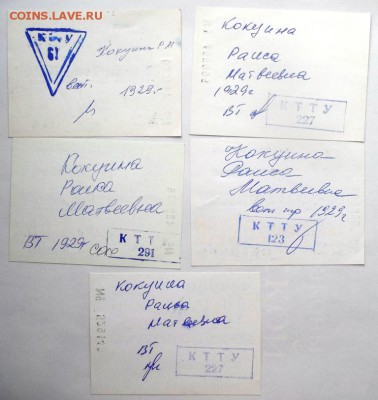 COINS.LAVE.RU
КТТУ
67
Кокуина Р.М
вет.
1929г
Кокуина
Раиса
Матвеевна
1929г
ВТ
КТТУ
227
Кокуина
Раиса
Матвеевна
ВТ 1929г
КТТ
291
Кокуина
Раиса
Матвеевна
вет тр 1929г
КТТУ
123
Кокуина
Раиса
Матвеевна
ВТ
КТТУ
227